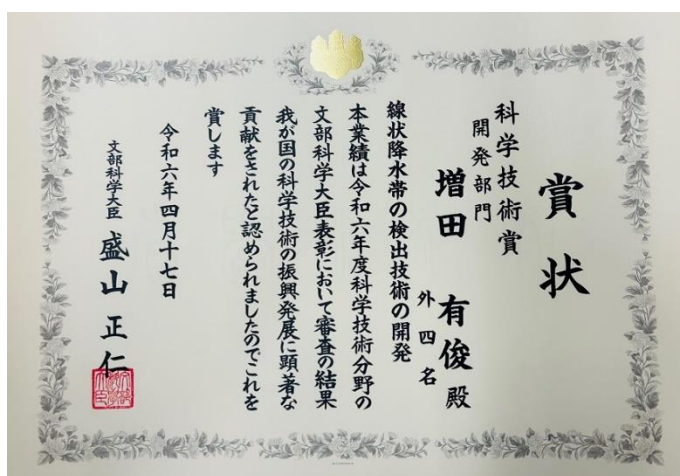 賞状
科学技術賞
開発部門
増田 有俊殿
外四名
線状降水帯の検出技術の開発
本業績は令和六年度科学技術分野の
文部科学大臣表彰において審査の結果
我が国の科学技術の振興発展に顕著な
貢献をされたと認められましたのでこれを
賞します
令和六年四月十七日
文部科学大臣 盛山正仁